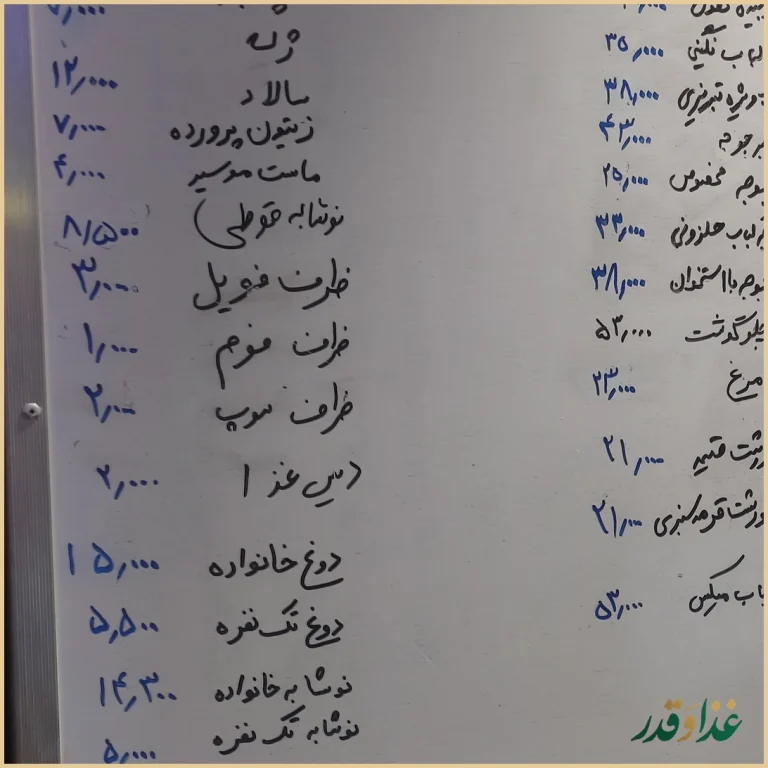 ۳۵٫۰۰۰ نگینی
۳۸٫۰۰۰ ویژه تبریزی
۴۳٫۰۰۰
۲۵٫۰۰۰ مخصوص
۳۳٫۰۰۰ حلزونی
۳۸٫۰۰۰ با استخوان
۵۳٫۰۰۰ گوشت
۲۳٫۰۰۰ مرغ
۲۱٫۰۰۰
۲۱٫۰۰۰ قرمه سبزی
۵۳٫۰۰۰ میکس
ژله
سالاد ۱۲٫۰۰۰
زیتون پرورده ۷٫۰۰۰
ماست موسیر ۴٫۰۰۰
نوشابه قوطی ۸٫۵۰۰
ظرف فویل ۳٫۰۰۰
ظرف فوم ۱٫۰۰۰
ظرف سوپ ۲٫۰۰۰
دیس غذا ۲٫۰۰۰
دوغ خانواده ۱۵٫۰۰۰
دوغ تک نفره ۵٫۵۰۰
نوشابه خانواده ۱۴٫۳۰۰
نوشابه تک نفره ۵٫۰۰۰
غذا و قدر